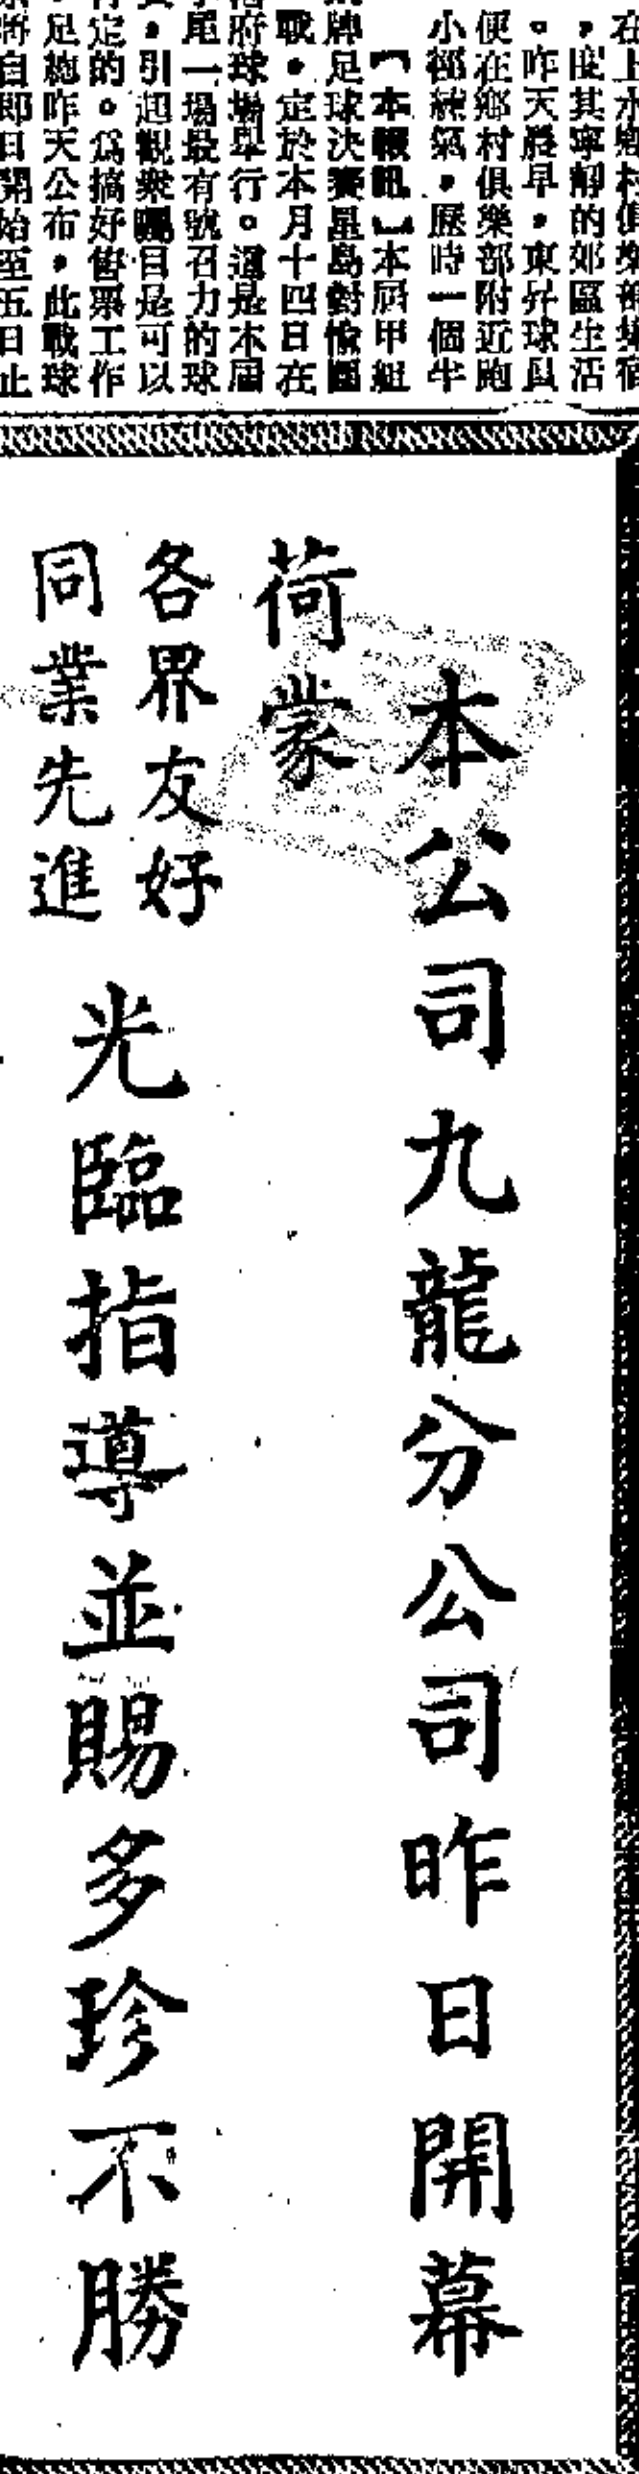 在上水鄉村俱樂部
，度其寧靜的郊區生活
。昨天晨早，東昇球員
便在鄉村俱樂部附近跑
小徑練氣，歷時一個半
【本報訊】本屆甲組
牌足球決賽星島對愉園
戰，定於本月十四日在
府球場舉行。這是本屆
尾一場最有號召力的球
，引起觀衆矚目是可以
定的。爲搞好售票工作
，足總昨天公布，此戰球
將自即日開始至五日止
本公司九龍分公司昨日開幕
荷蒙
各界友好
同業先進
光臨指導並賜多珍不勝